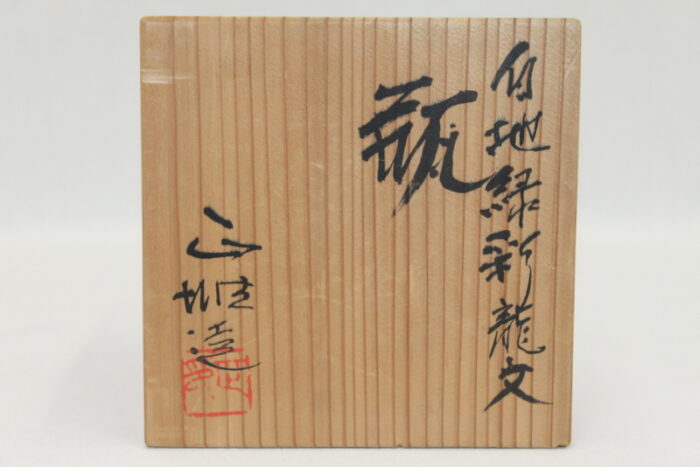 白地緑彩龍文
瓶
造